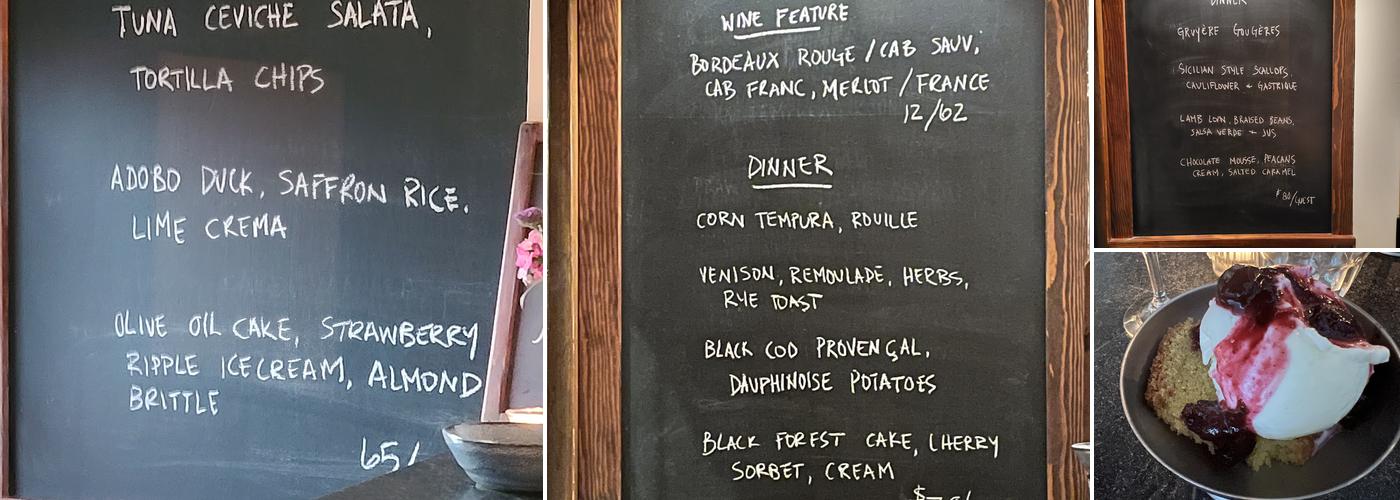 TUNA CEVICHE SALATA,
TORTILLA CHIPS
ADOBO DUCK, SAFFRON RICE,
LIME CREMA
OLIVE OIL CAKE, STRAWBERRY
RIPPLE ICECREAM, ALMOND
BRITTLE
65/
WINE FEATURE
BORDEAUX ROUGE / CAB SAUV,
CAB FRANC, MERLOT / FRANCE
12/62
DINNER
CORN TEMPURA, ROUILLE
VENISON, REMOULADE, HERBS,
RYE TOAST
BLACK COD PROVENÇAL,
DAUPHINOISE POTATOES
BLACK FOREST CAKE, CHERRY
SORBET, CREAM
DINNER
GRUYÈRE GOUGÈRES
SICILIAN STYLE SCALLOPS,
CAULIFLOWER + GASTRIQUE
LAMB LOIN, BRAISED BEANS,
SALSA VERDE + JUS
CHOCOLATE MOUSSE, PEACANS
CREAM, SALTED CARAMEL
$80/GUEST